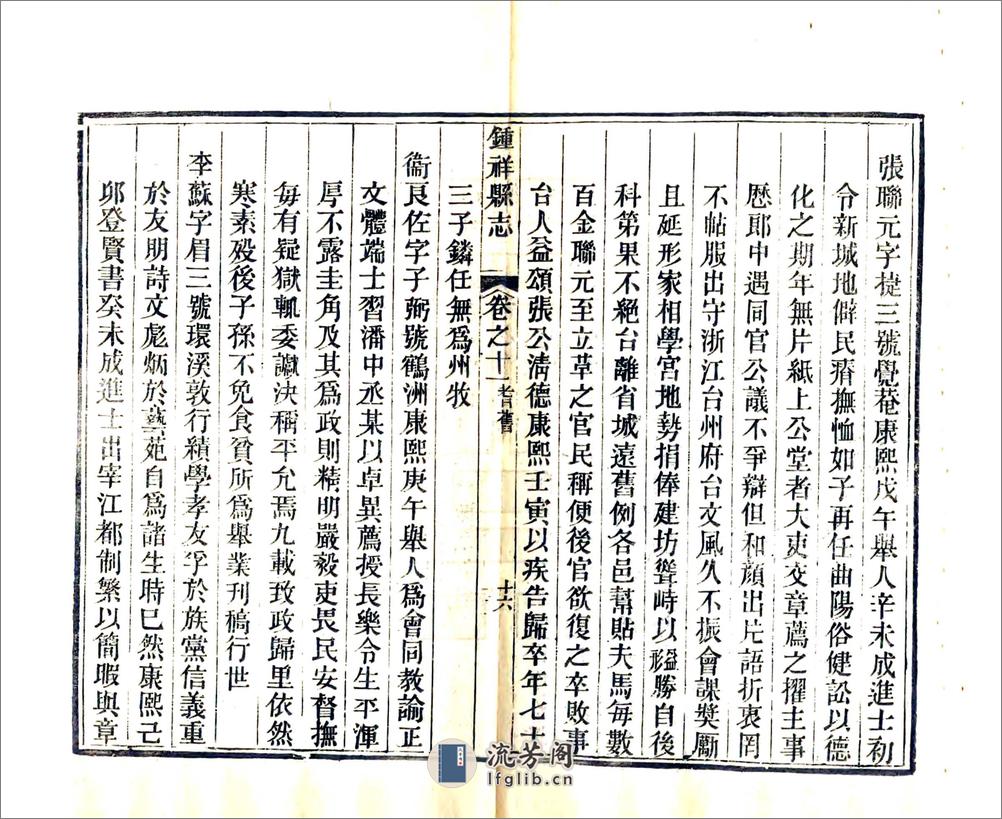 張聯元字捷三號覺菴康熙戊午舉人辛未成進士初
令新城地僻民瘠撫恤如子再任曲陽俗健訟以德
化之期年無片紙上公堂者大吏交章薦之擢主事
歷郎中遇同官公議不爭辯但和顔出片語折衷罔
不帖服出守浙江台州府台文風久不振會課獎勵
且延形家相學宮地勢捐俸建坊聳峙以禆勝自後
科第果不絕台離省城遠舊例各邑幫貼夫馬每數
百金聯元至立草之官民稱便後官欲復之卒敗事
台人益頌張公淸德康熙壬寅以疾告歸卒年七十
三子鏻任無爲州牧
鍾祥縣志
卷之十一
耆舊
十六
衞良佐字子弼號鶴洲康熙庚午舉人爲會同教諭正
文體端士習潘中丞某以卓異薦授長樂令生平渾
厚不露圭角及其爲政則精明嚴毅吏畏民安督撫
每有疑獄輒委讞決稱平允焉九載致政歸里依然
寒素殁後子孫不免食貧所爲舉業刊稿行世
李蘇字眉三號環溪敦行績學孝友孚於族黨信義重
於友朋詩文彪炳於藝苑自爲諸生時已然康熙己
夘登賢書癸未成進士出宰江都制繁以簡暇與章
流芳阁
lfglib.cn